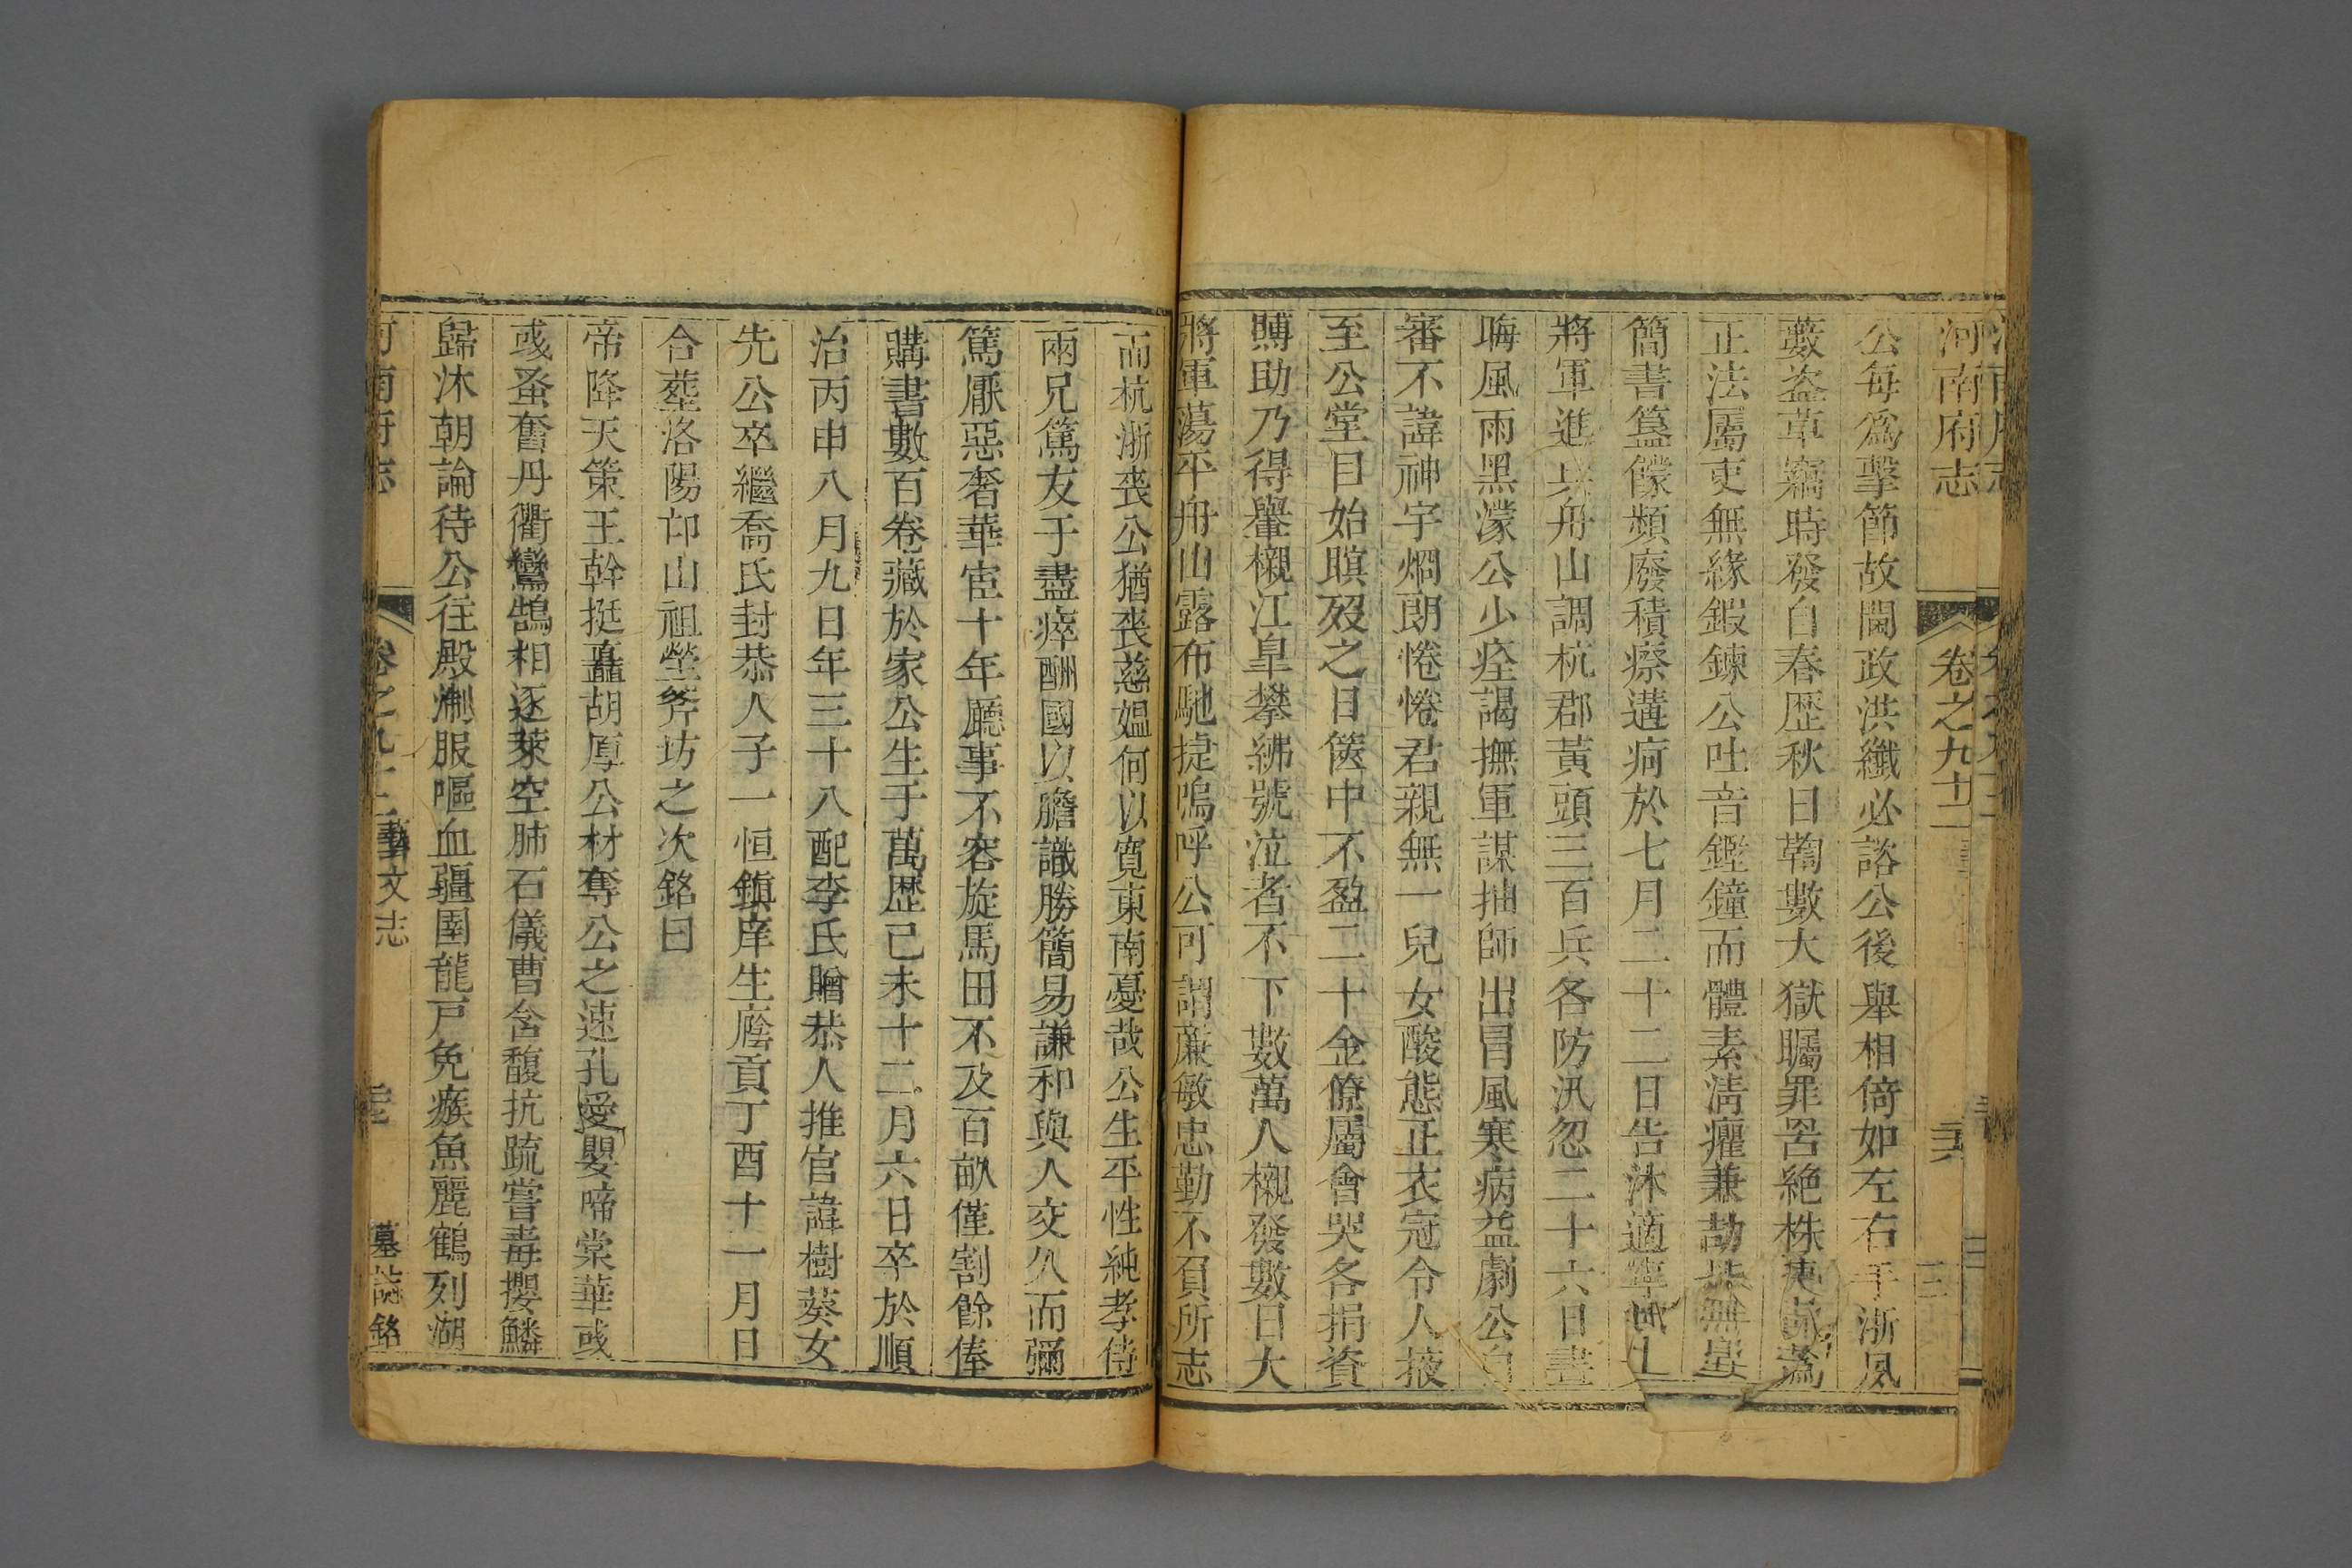 河南府志 卷之九十二
公每爲擊節故閫政洪纖必諮公後舉相倚如左右手浙夙
藪盗萑竊時發自春歴秋日鞫數大獄矚罪罟絶株
正法屬吏無緣鍜鍊公吐音鏗鐘而體素淸癯兼劼
簡書簋饛頻廢積瘵遘疴於七月二十二日告沐適
將軍進兵舟山調杭郡黄頭三百兵各防汛忽二十六日晝
晦風雨黑濛公少痊謁撫軍謀抽師出冒風寒病益劇公自
審不諱神宇烱朗惓惓君親無一兒女酸態正衣冠令人掖
至公堂目始瞑殁之日篋中不盈二十金僚屬會哭各捐資
賻助乃得轝櫬江皐攀紼號泣者不下數萬人櫬發數日大
將軍蕩平舟山露布馳捷嗚呼公可謂廉敏忠勤不負所志
而杭浙丧公猶丧慈媼何以寬東南憂哉公生平性純孝侍
兩兄篤友于盡瘁酬國以膽識勝簡易謙和與人交久而彌
篤厭惡奢華宦十年廳事不容旋馬田不及百畝僅割餘俸
購書數百卷藏於家公生于萬歴己未十二月六日卒於順
治丙申八月九日年三十八配李氏贈恭人推官諱樹葵女
先公卒繼喬氏封恭人子一恒鎭庠生廕貢丁酉十一月日
合葬洛陽邙山祖塋斧坊之次銘曰
帝降天策王幹挺矗胡厚公材奪公之速孔愛嬰啼棠華彧
彧蚤奮丹衢鸞鵠相逐萊空肺石儀曹含馥抗疏嘗毒攖鱗
歸沐朝論待公往殿淛服嘔血疆圉龍戸免瘯魚麗鶴列湖
河南府志 卷之九十二 藝文志 墓誌銘